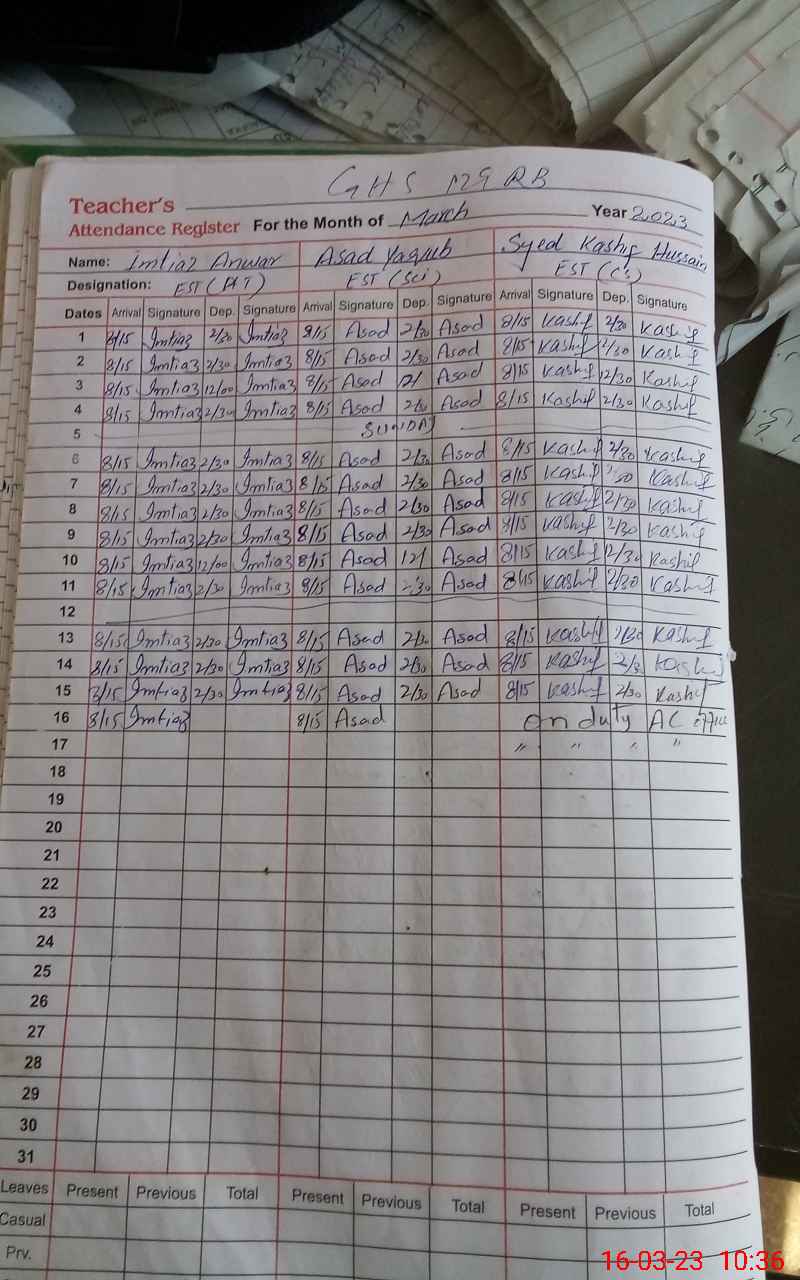 GHS 129 RB
Teacher's
Attendance Register For the Month of March Year 2023
Name: Imtiaz Anwar Asad Yaqub Syed Kashif Hussain
Designation: EST (PET) EST (Sci) EST (CS)
Dates Arrival Signature Dep. Signature Arrival Signature Dep. Signature Arrival Signature Dep. Signature
1 8/15 Imtiaz 2/30 Imtiaz 8/15 Asad 2/30 Asad 8/15 Kashif 2/30 Kashif
2 8/15 Imtiaz 2/30 Imtiaz 8/15 Asad 2/30 Asad 8/15 Kashif 2/30 Kashif
3 8/15 Imtiaz 12/00 Imtiaz 8/15 Asad 12/ Asad 8/15 Kashif 12/30 Kashif
4 8/15 Imtiaz 2/30 Imtiaz 8/15 Asad 2/30 Asad 8/15 Kashif 2/30 Kashif
5 SUNDAY
6 8/15 Imtiaz 2/30 Imtiaz 8/15 Asad 2/30 Asad 8/15 Kashif 2/30 Kashif
7 8/15 Imtiaz 2/30 Imtiaz 8/15 Asad 2/30 Asad 8/15 Kashif 2/30 Kashif
8 8/15 Imtiaz 2/30 Imtiaz 8/15 Asad 2/30 Asad 8/15 Kashif 2/30 Kashif
9 8/15 Imtiaz 2/30 Imtiaz 8/15 Asad 2/30 Asad 8/15 Kashif 2/30 Kashif
10 8/15 Imtiaz 12/00 Imtiaz 8/15 Asad 12/ Asad 8/15 Kashif 2/30 Kashif
11 8/15 Imtiaz 2/30 Imtiaz 8/15 Asad 2/30 Asad 8/15 Kashif 2/30 Kashif
12
13 8/15 Imtiaz 2/30 Imtiaz 8/15 Asad 2/30 Asad 8/15 Kashif 2/30 Kashif
14 8/15 Imtiaz 2/30 Imtiaz 8/15 Asad 2/30 Asad 8/15 Kashif 2/3 Kashif
15 8/15 Imtiaz 2/30 Imtiaz 8/15 Asad 2/30 Asad 8/15 Kashif 2/30 Kashif
16 8/15 Imtiaz 8/15 Asad on duty AC office
17 " " " "
18
19
20
21
22
23
24
25
26
27
28
29
30
31
Leaves Present Previous Total Present Previous Total Present Previous Total
Casual
Prv.
16-03-23 10:36